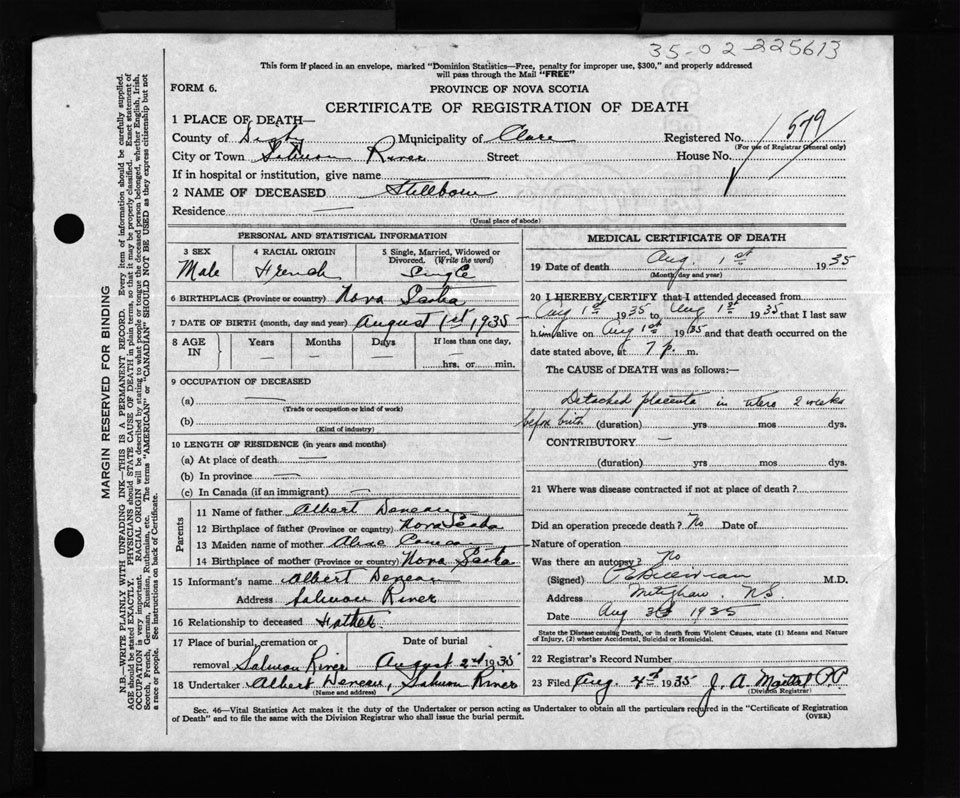 35-02-225613
This form if placed in an envelope, marked "Dominion Statistics—Free, penalty for improper use, $300," and properly addressed
will pass through the Mail "FREE"
FORM 6.
PROVINCE OF NOVA SCOTIA
CERTIFICATE OF REGISTRATION OF DEATH
1 PLACE OF DEATH—
County of Digby Municipality of Clare Registered No. 579
(For use of Registrar General only)
City or Town Salmon River Street House No.
If in hospital or institution, give name
2 NAME OF DECEASED Stillborn
Residence —
(Usual place of abode)
PERSONAL AND STATISTICAL INFORMATION
3 SEX 4 RACIAL ORIGIN 5 Single, Married, Widowed or
Divorced. (Write the word)
Male French Single
6 BIRTHPLACE (Province or country) Nova Scotia
7 DATE OF BIRTH (month, day and year) August 1st 1935
8 AGE IN Years Months Days If less than one day,
— — — —
hrs. or min.
9 OCCUPATION OF DECEASED
(a) —
(Trade or occupation or kind of work)
(b)
(Kind of industry)
10 LENGTH OF RESIDENCE (in years and months)
(a) At place of death —
(b) In province —
(c) In Canada (if an immigrant) —
Parents
11 Name of father Albert Deneau
12 Birthplace of father (Province or country) Nova Scotia
13 Maiden name of mother Aline
14 Birthplace of mother (Province or country) Nova Scotia
15 Informant's name Albert Deneau
Address Salmon River
16 Relationship to deceased Father
17 Place of burial, cremation or Date of burial
removal Salmon River August 2nd 1935
18 Undertaker Albert Deneau, Salmon River
(Name and address)
MEDICAL CERTIFICATE OF DEATH
19 Date of death Aug. 1st 1935
(Month, day and year)
20 I HEREBY CERTIFY that I attended deceased from
Aug 1st 1935 to Aug 1st 1935 that I last saw
him alive on Aug 1st 1935 and that death occurred on
date stated above, at 7 p. m.
The CAUSE of DEATH was as follows:—
Detached placenta in utero 2 weeks
before birth (duration) yrs mos dys.
CONTRIBUTORY —
(duration) yrs mos dys.
21 Where was disease contracted if not at place of death?
Did an operation precede death? No Date of
Nature of operation
Was there an autopsy? No
(Signed) M.D.
Address Meteghan N.S.
Date Aug 3d 1935
State the Disease causing Death, or in death from Violent Causes, state (1) Means and Nature
of Injury, (2) whether Accidental, Suicidal or Homicidal.
22 Registrar's Record Number
23 Filed Aug. 4th 1935 J. A.
(Division Registrar)
Sec. 46—Vital Statistics Act makes it the duty of the Undertaker or person acting as Undertaker to obtain all the particulars required in the "Certificate of Registration
of Death" and to file the same with the Division Registrar who shall issue the burial permit.
(OVER)
MARGIN RESERVED FOR BINDING
N.B.—WRITE PLAINLY WITH UNFADING INK—THIS IS A PERMANENT RECORD. Every item of information should be carefully supplied.
AGE should be stated EXACTLY. PHYSICIANS should STATE CAUSE OF DEATH in plain terms, so that it may be properly classified. Exact statement of
OCCUPATION is very important. RACIAL ORIGIN will be described by stating to what people or tongue the deceased person belonged, whether English, Irish,
Scotch, French, German, Russian, Ruthenian, etc. The terms "AMERICAN" or "CANADIAN" SHOULD NOT BE USED as they express citizenship but not
a race or people. See instructions on back of Certificate.